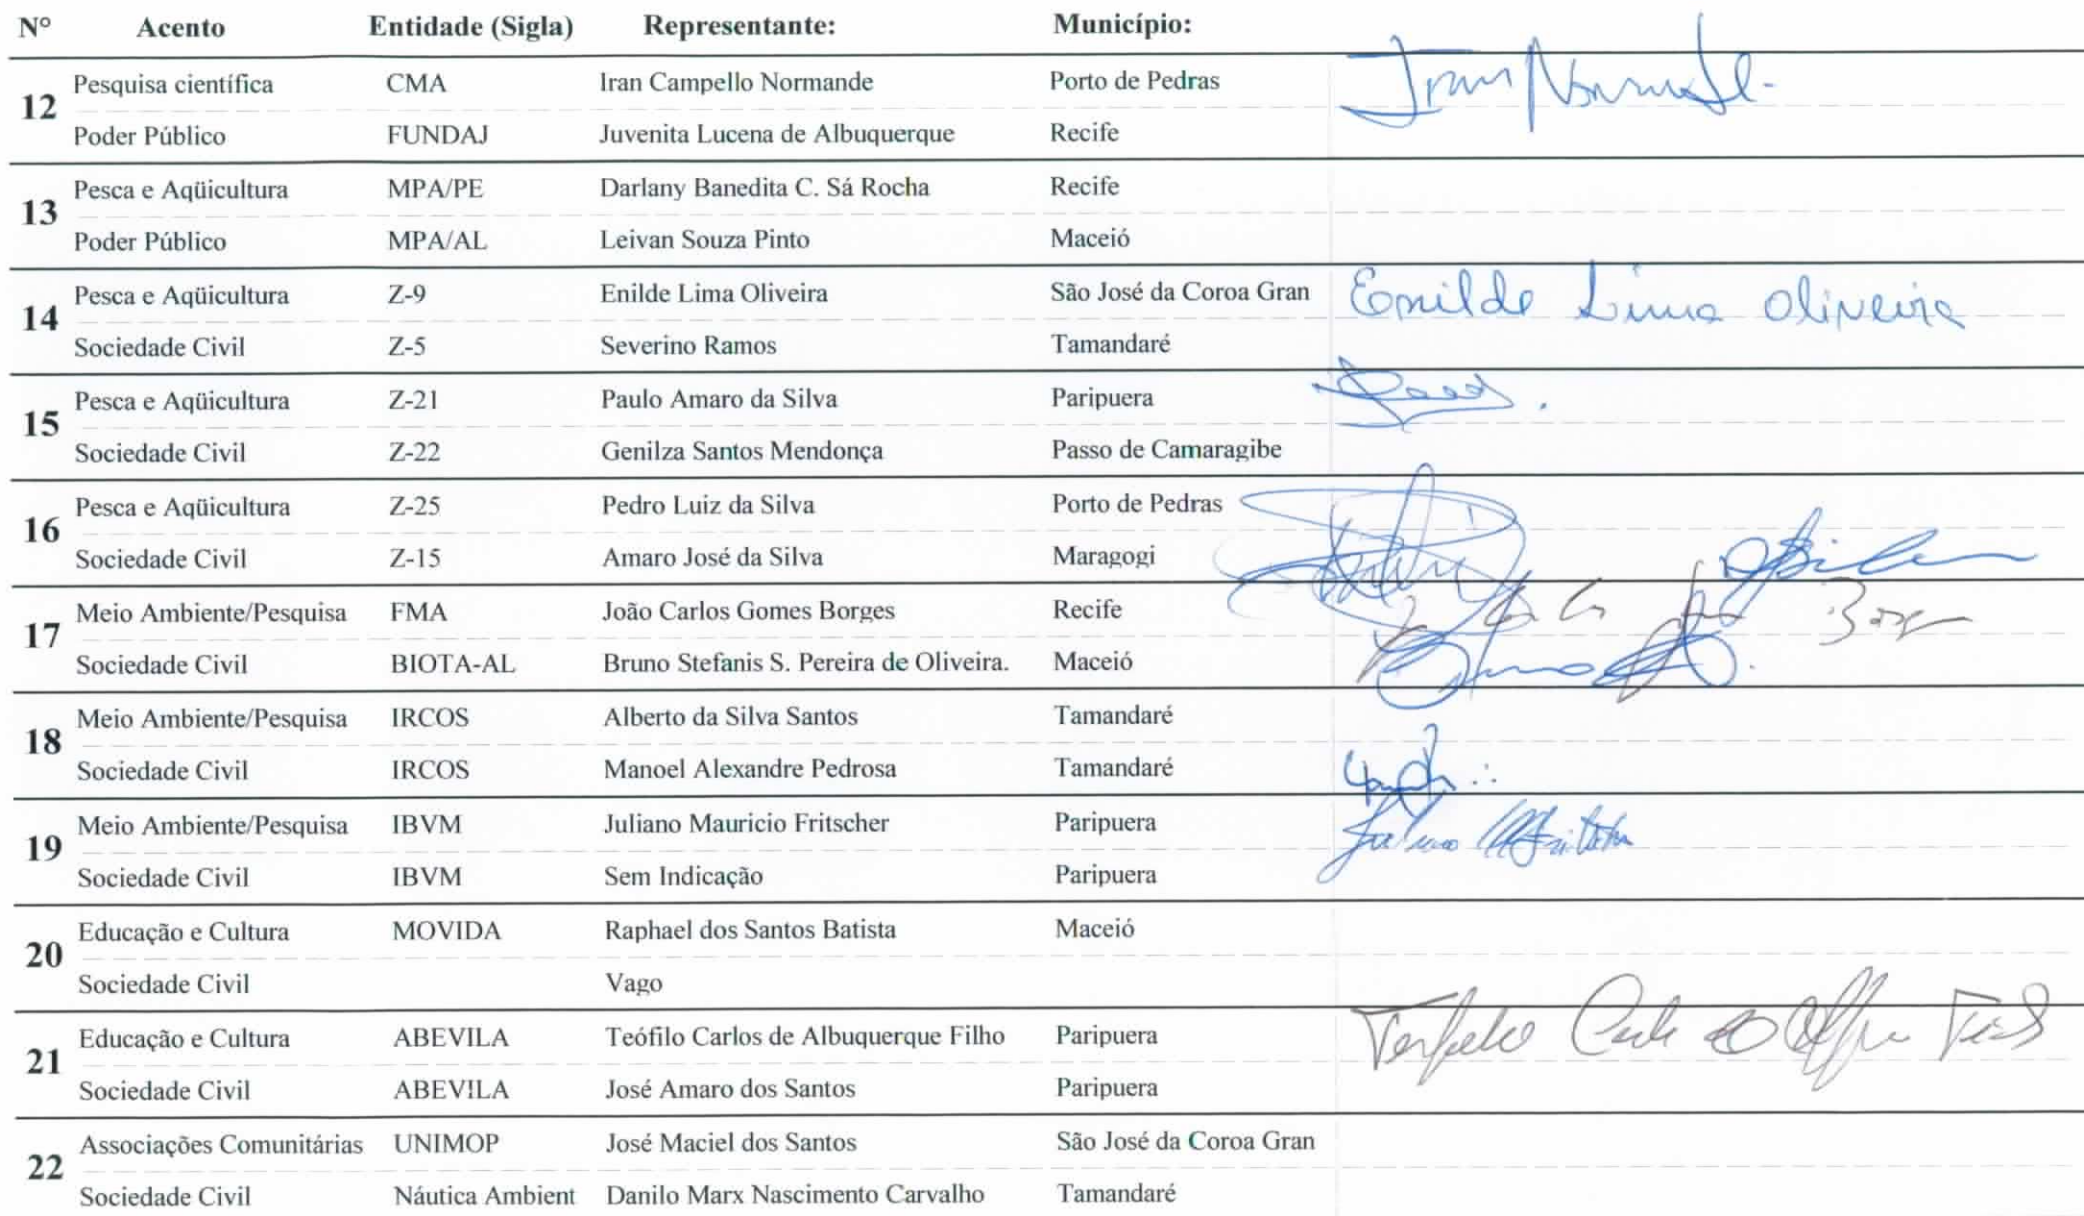 Nº Acento Entidade (Sigla) Representante: Município:
12
Pesquisa científica CMA Iran Campello Normande Porto de Pedras Iran Normande
Poder Público FUNDAJ Juvenita Lucena de Albuquerque Recife
13
Pesca e Aqüicultura MPA/PE Darlany Banedita C. Sá Rocha Recife
Poder Público MPA/AL Leivan Souza Pinto Maceió
14
Pesca e Aqüicultura Z-9 Enilde Lima Oliveira São José da Coroa Gran Enilde Lima Oliveira
Sociedade Civil Z-5 Severino Ramos Tamandaré
15
Pesca e Aqüicultura Z-21 Paulo Amaro da Silva Paripuera
Sociedade Civil Z-22 Genilza Santos Mendonça Passo de Camaragibe
16
Pesca e Aqüicultura Z-25 Pedro Luiz da Silva Porto de Pedras
Sociedade Civil Z-15 Amaro José da Silva Maragogi
17
Meio Ambiente/Pesquisa FMA João Carlos Gomes Borges Recife
Sociedade Civil BIOTA-AL Bruno Stefanis S. Pereira de Oliveira. Maceió
18
Meio Ambiente/Pesquisa IRCOS Alberto da Silva Santos Tamandaré
Sociedade Civil IRCOS Manoel Alexandre Pedrosa Tamandaré
19
Meio Ambiente/Pesquisa IBVM Juliano Mauricio Fritscher Paripuera
Sociedade Civil IBVM Sem Indicação Paripuera
20
Educação e Cultura MOVIDA Raphael dos Santos Batista Maceió
Sociedade Civil Vago
21
Educação e Cultura ABEVILA Teófilo Carlos de Albuquerque Filho Paripuera
Sociedade Civil ABEVILA José Amaro dos Santos Paripuera
22
Associações Comunitárias UNIMOP José Maciel dos Santos São José da Coroa Gran
Sociedade Civil Náutica Ambient Danilo Marx Nascimento Carvalho Tamandaré